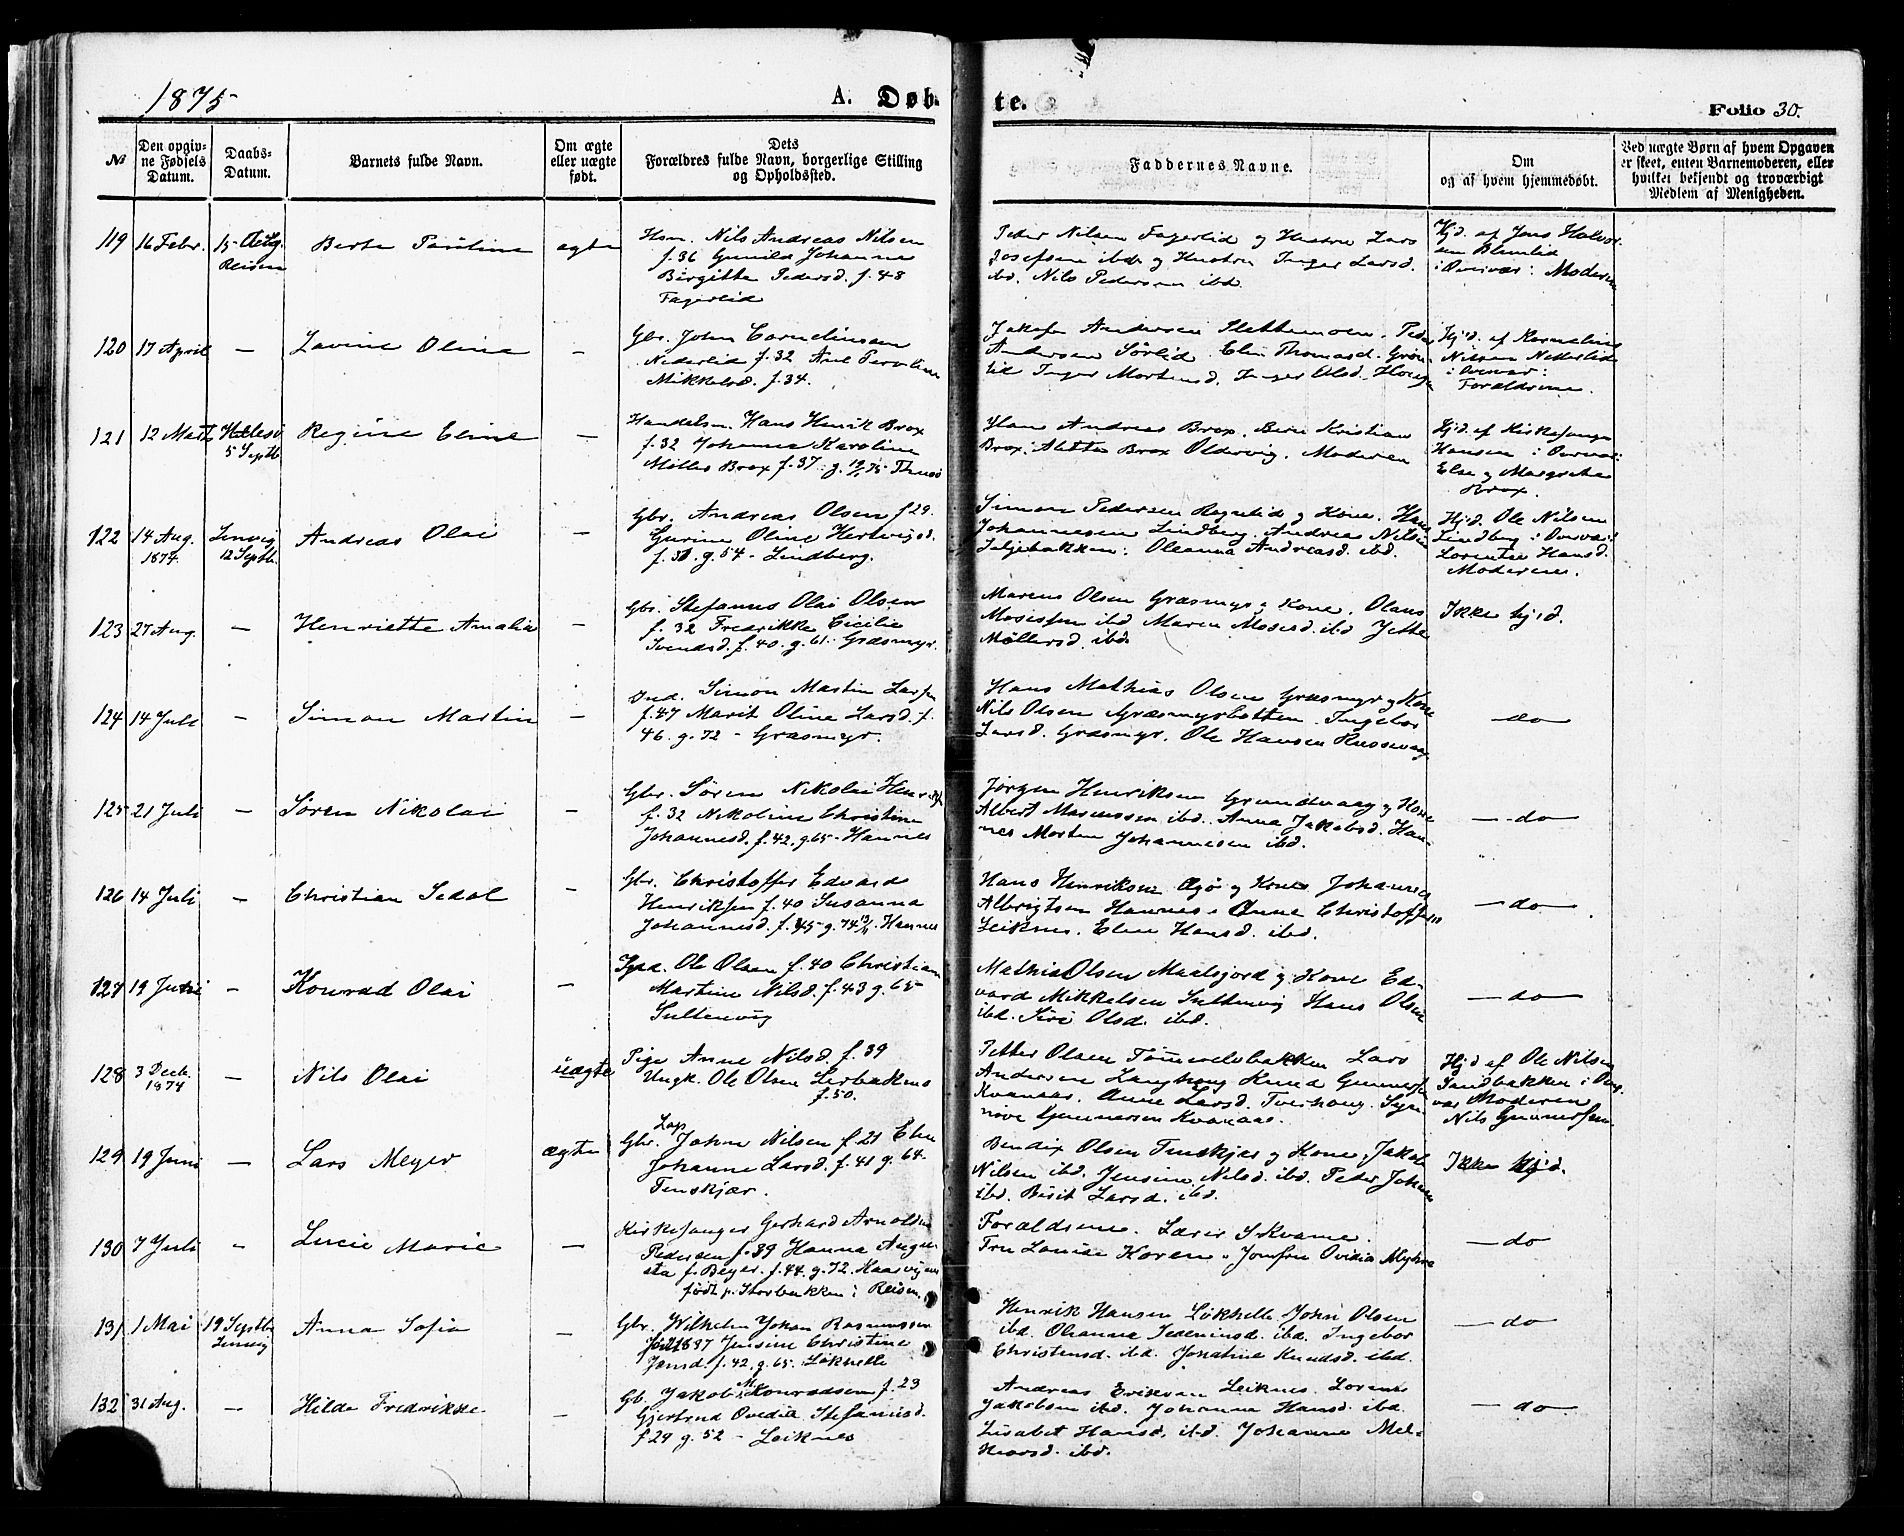 1875
A. Døb-
te.
Folio 30.
№
Den opgiv-
ne Fødsels
Datum.
Daabs-
Datum.
Barnets fulde Navn.
Om ægte
eller uægte
født.
Dets
Forældres fulde Navn, borgerlige Stilling
og Opholdssted.
Faddernes Navne.
Om
og af hvem hjemmedøbt.
Ved uægte Børn af hvem Opgaven
er skeet, enten Barnemoderen, eller
hvilket bekjendt og troværdigt
Medlem af Menigheden.
119 16 Febr. 15 Aug. Berte Pauline ægte
Reisen
Hsm. Nils Andreas Nilsen
f. 36 Gunild Johanna
Birgitte Pedersd. f. 48
Fagerlid
Peder Nilsen Fagerlid og Hustru Lars
Josefsen ibd. og Hustru Inger Larsd.
ibd. Nils Pedersen ibd.
Hjd. af Jens Halvor-
sen
i Overvær: Moderen
120 17 April — Lovine Oline —
Gbr. John Cornelius
Nederlid f. 32 Ane
Mikkelsd. f. 34.
Andersen Slettemoen. Peder
Andersen Sørlid. Elen Thomasd. Grøn-
lid Inger Mortensd. Inger Olsd.
Hjd. af Kornelius
Nilsen Nederlid
i Overvær:
Forældrene.
121 12 Marts Hillesø Regine Eline —
5 Septb.
Handelsm. Hans Henrik Brox
f. 32 Johanna Karoline
Møller Brox f. 37
Hans Andreas Brox. Bern Kristian
Brox. Alette Brox Oldervig. Moderen
Hjd. af Kirkesanger
Hansen i Overvær:
Else og Margrethe
Brox.
122 14 Aug. Lenvig Andreas Olai —
1874. 12 Septb.
Gbr. Andreas Olsen f. 29.
Gurine Oline Hertvigsd.
f. 30 g. 54 - Lindberg.
Simon Pedersen Røgnlid og Kone. Hans
Johannesen Lindberg. Andreas Nilsen
Siljebakken: Oleanna Andreasd. ibd.
Hjd. Ole Nilsen
Lindberg i Overvær:
Lorentse Hansd.
Moderen.
123 27 Aug. — Henriette Amalia —
Gbr. Stefanus Olai Olsen
f. 32 Fredrikke Cicilie
Svendsd. f. 40. g. 61. Græsmyr.
Marcus Olsen Græsmyr og Kone. Olaus
Mosessen ibd. Maren Mosesd. ibd Jette
Møllersd. ibd.
Ikke hjd.
124 14 Juli — Simon Martin —
Ind. Simon Martin Larsen
f. 47 Marit Oline Larsd. f.
46. g. 72 - Græsmyr.
Hans Mathias Olsen Græsmyr og Kone
Nils Olsen Græsmyrbotten. Ingebor
Larsd. Græsmyr. Ole Hansen Russevaag
— do —
125 21 Juli — Søren Nikolai —
Gbr. Søren Nikolai Henriks.
f. 32 Nikoline Christine
Johannesd. f. 42. g. 65 - Hannes
Jørgen Henriksen Grundvaag og Kone
Albert Rasmussen ibd. Anna Jakobsd. Han-
nes Morten Johannesen ibd.
— do —
126 14 Juli — Christian Sedol —
Gbr. Christoffer Edvard
Henriksen f. 40 Susanna
Johannesd. f. 45 g. 74 Hannes
Hans Henriksen Øgø og Kone. Johannes
Albrigtsen Hannes. Anne Christoffers
Leiknes. Elen Hansd. ibd.
— do —
127 19 Juni — Konrad Olai —
Ole Olsen f. 40 Christian
Martine Nilsd. f. 43 g. 65
Sultenvig
Mathias Olsen Maalsjord og Kone Ed-
vard Mikkelsen Sultenvig Hans Olsen
ibd. Siri Olsd. ibd.
— do —
128 3 Decb. — Nils Olai uægte
1874
Pige Anne Nilsd. f. 39
Ungk. Ole Olsen Lerbaknes
f. 50.
Petter Olsen Tømmelsbakken Lars
Andersen Langhaug Knud Gunnersen
Kvanaas. Anne Larsd. Tverhaug. Syn-
nøve Gunnersen Kvanaas.
Hjd af Ole Nilsen
Sandbakken i Over-
vær Moderen
Nils Gunnersen
129 19 Juni — Lars Meyer ægte
Lap
Gbr. Johan Nilsen f. 21 Elen
Johanne Larsd. f. 41 g. 64.
Finskjær.
Bendix Olsen Finskjær og Kone. Jakob
Nilsen ibd. Jensine Nilsd. ibd. Peder Johan
ibd. Berit Larsd. ibd.
Ikke hjd.
130 7 Juli — Lucie Marie —
Kirkesanger Gerhard Arnoldus
Pedersen f. 39 Hanna Augu-
sta f. Beyer. f. 44. g. 72.
født p. Storbakken i Reisen
Forældrene. Lærer S Kvame.
Fru Louise Koren. Jomfru Ovidia
— do
131 1 Mai 19 Septb. Anna Sofia —
Lenvig
Gbr. Wilhelm Johan Rasmussen
født 1837 Jensine Christine
Jensd. f. 42. g. 65. Løkhelle
Henrik Hansen Løkhelle John Olsen
ibd. Ohanna ibd. Ingebor
Christensd. ibd. Jonatine Knudsd. ibd.
— do
132 31 Aug. — Hilda Fredrikke —
Gb. Jakob M. Konradsen f. 23
Gjertrud Ovedia Stefanusd.
f 29 g. 52 - Leiknes
Andreas Eriksen Leiknes. Lorents
Jakobsen ibd. Johanna Hansd. ibd.
Lisabet Hansd. ibd. Johanne Mel-
kiorsd. ibd.
— do —